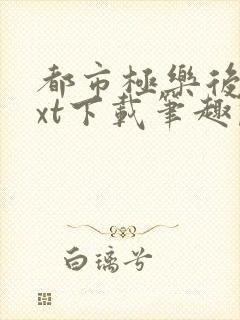 都市極樂後
xt下載筆趣
白璃兮